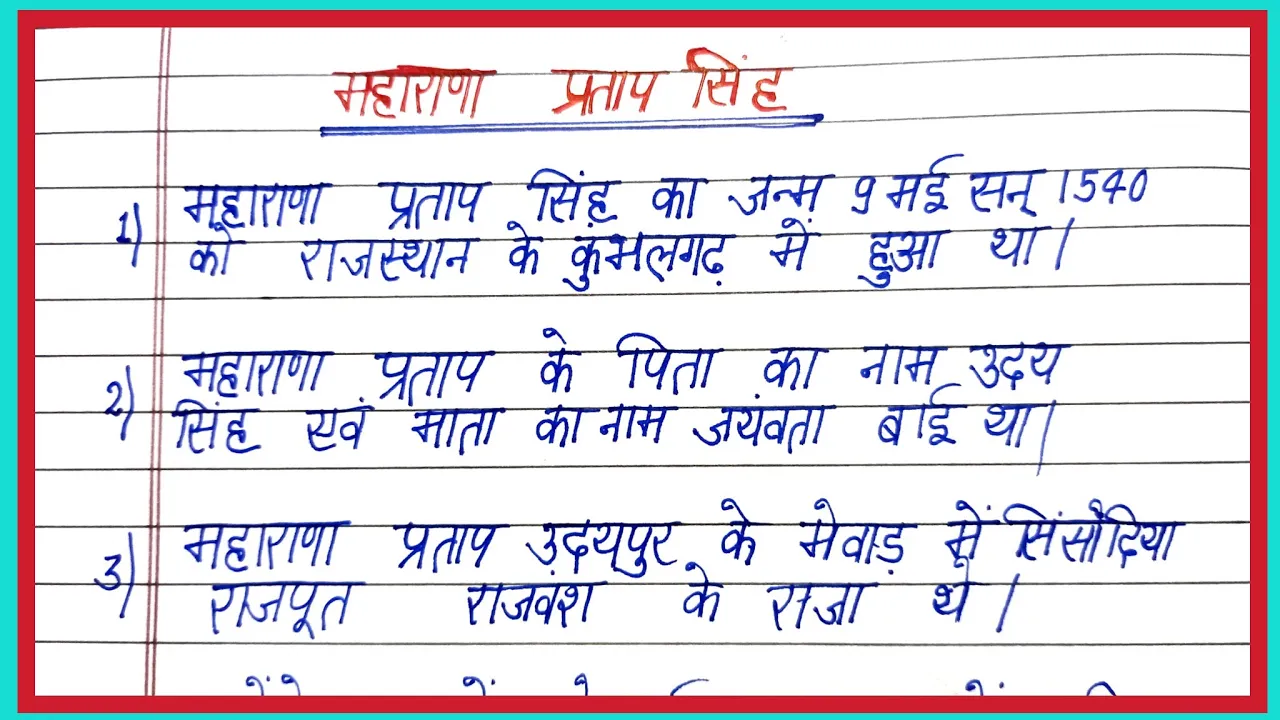 महाराणा प्रताप सिंह
1) महाराणा प्रताप सिंह का जन्म 9 मई सन् 1540
को राजस्थान के कुंभलगढ़ में हुआ था।
2) महाराणा प्रताप के पिता का नाम उदय
सिंह एवं माता का नाम जयंवता बाई था।
3) महाराणा प्रताप उदयपुर के मेवाड़ में सिंसौदिया
राजपूत राजवंश के राजा थे।